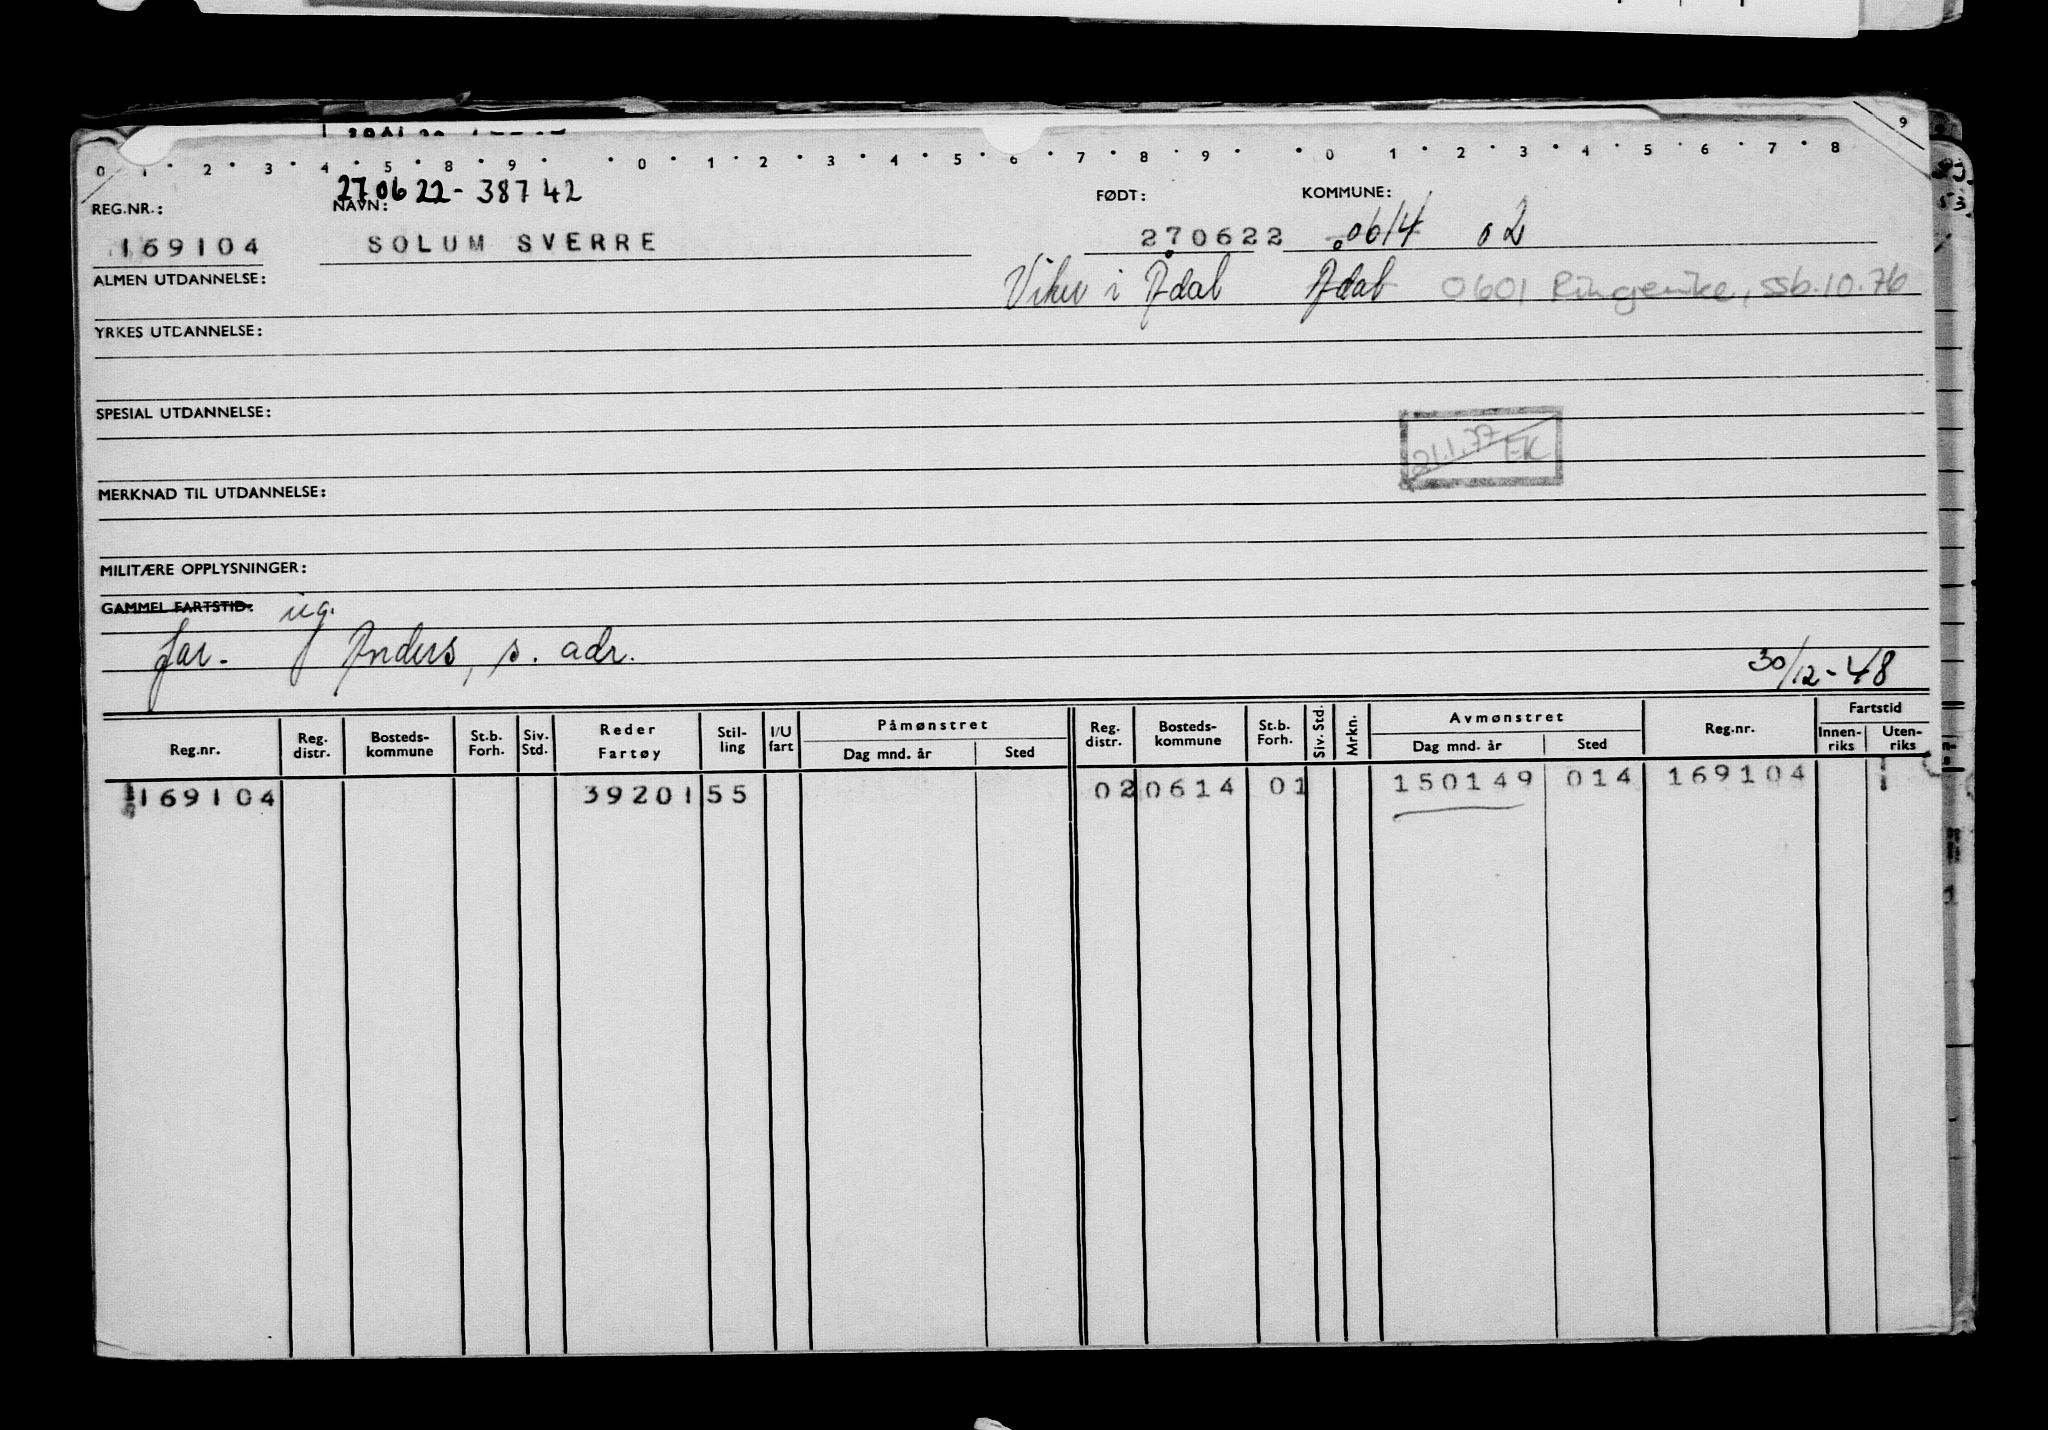 0 1 2 3 4 5 8 9 0 1 2 3 4 5 6 7 8 9 0 1 2 3 4 5 6 7 8 9
270622-38742
REG.NR.: NAVN: FØDT: KOMMUNE:
169104 SOLUM SVERRE 270622 0614 02
ALMEN UTDANNELSE: Viker i Ådal Ådal 0601 Ringerike, SSb.10.76
YRKES UTDANNELSE:
SPESIAL UTDANNELSE:
21.1.77 EK
MERKNAD TIL UTDANNELSE:
MILITÆRE OPPLYSNINGER:
GAMMEL FARTSTID: ug.
far. Anders, s. adr.
30/12-48
Reg.nr. Reg. distr. Bosteds-kommune St.b. Forh. Siv. Std. Reder Fartøy Stil-ling I/U fart Påmønstret Dag mnd. år Sted Reg. distr. Bosteds-kommune St.b. Forh. Siv. Std. Mrkn. Avmønstret Dag mnd. år Sted Reg.nr. Fartstid Innen-riks Uten-riks
169104 39201 55 02 0614 01 150149 014 169104